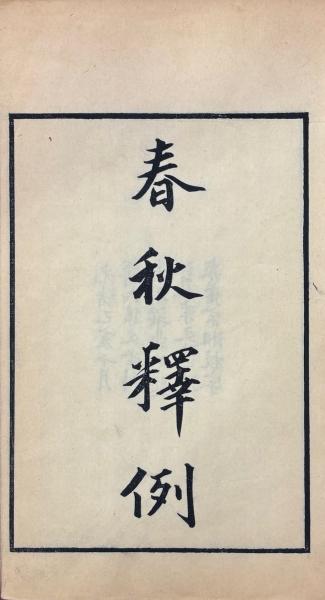 春秋釋例